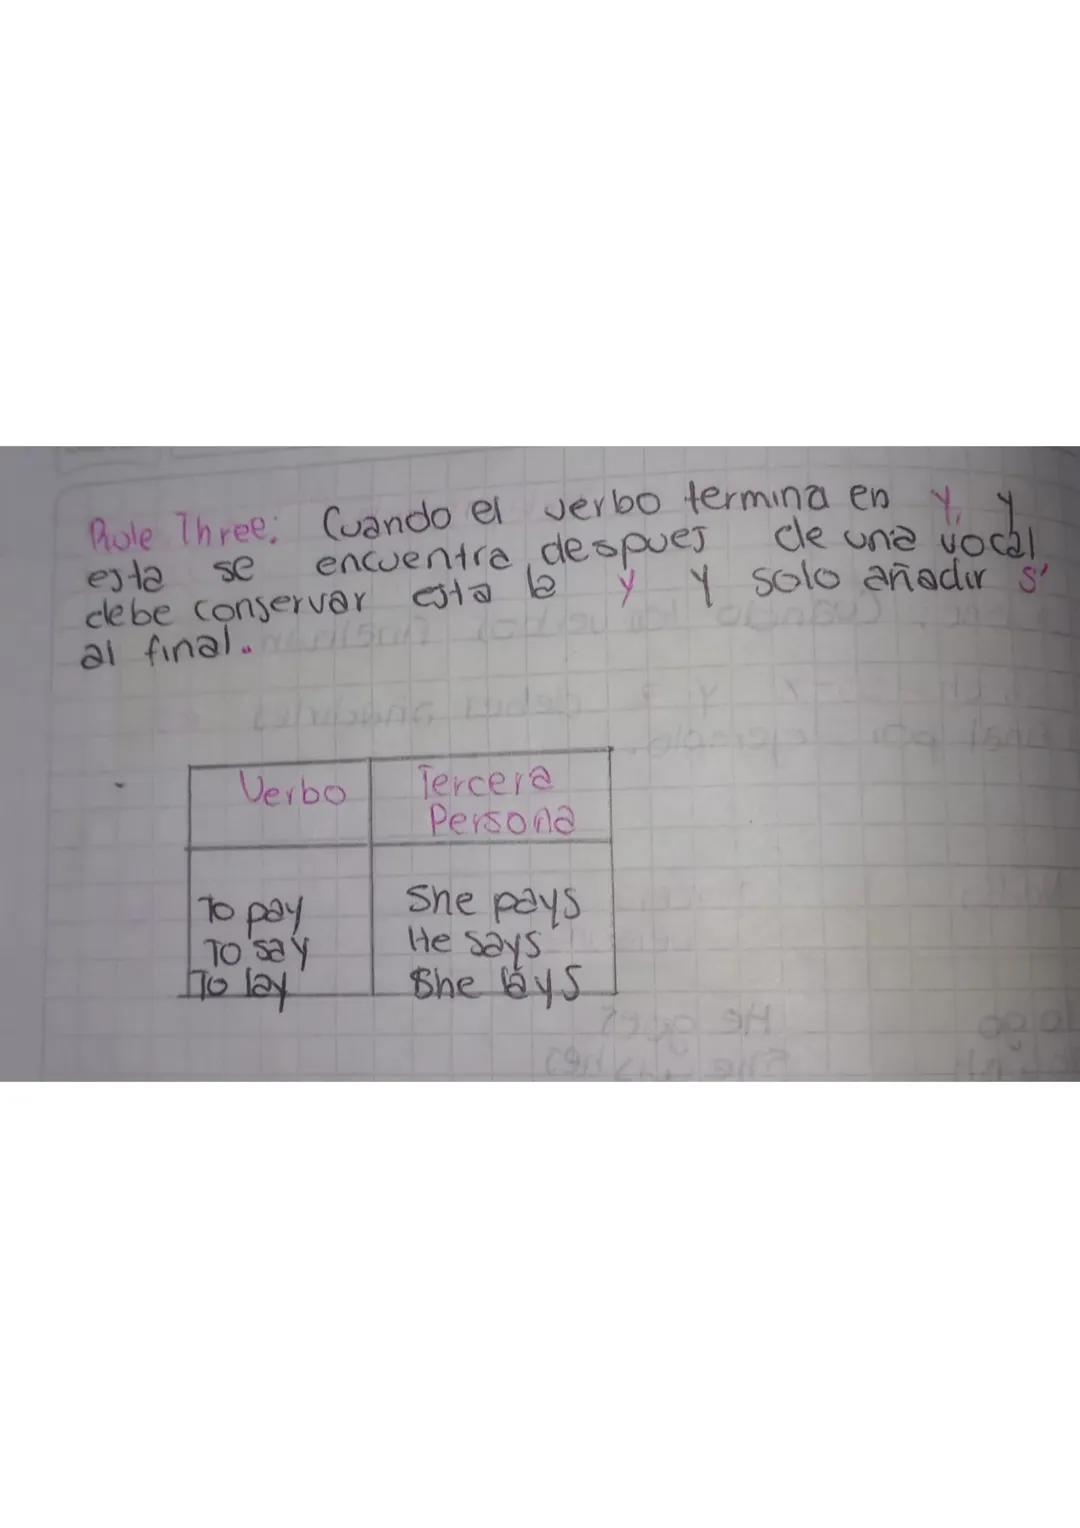 Rule Three: Cuando el verbo termina en y, y
esta se encuentra despues de una vocal
debe conservar esta la y y solo añadir s'
al final.
Verbo Tercera
Persona
To pay She pays
To say He says
To lay She lays